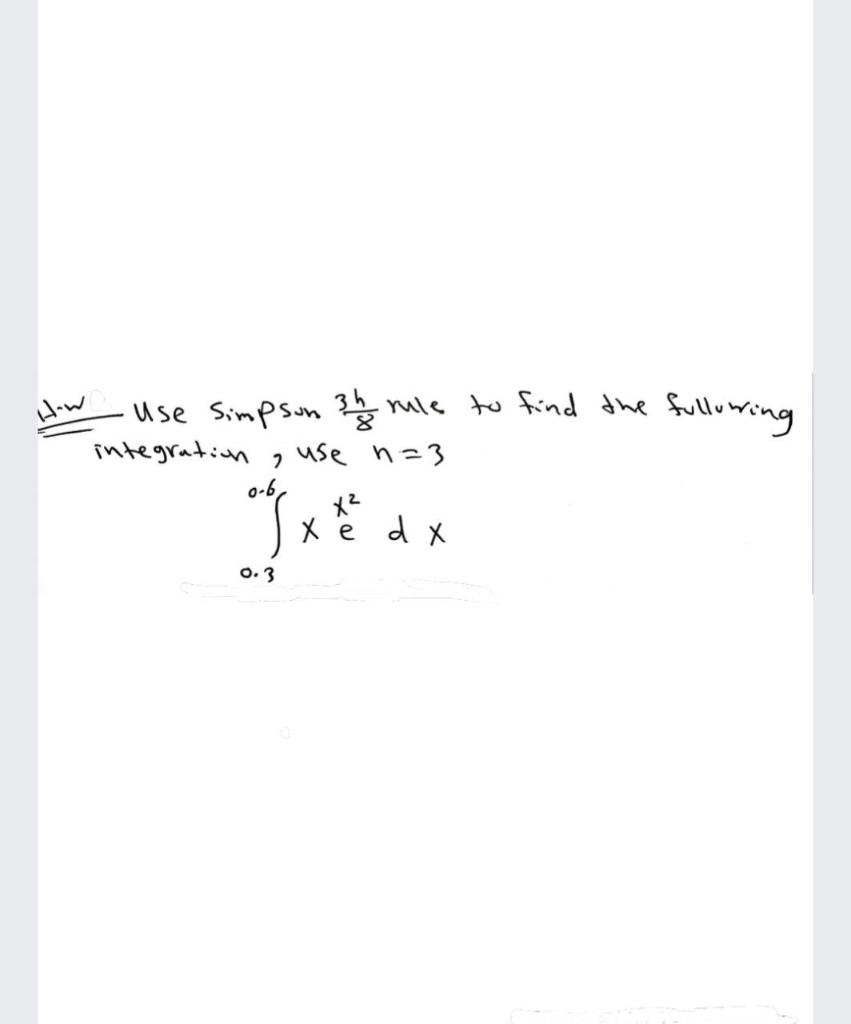 H.w Use Simpson 3h/8 rule to find the following
integration, use n=3
∫_{0.3}^{0.6} x e^{x^2} d x